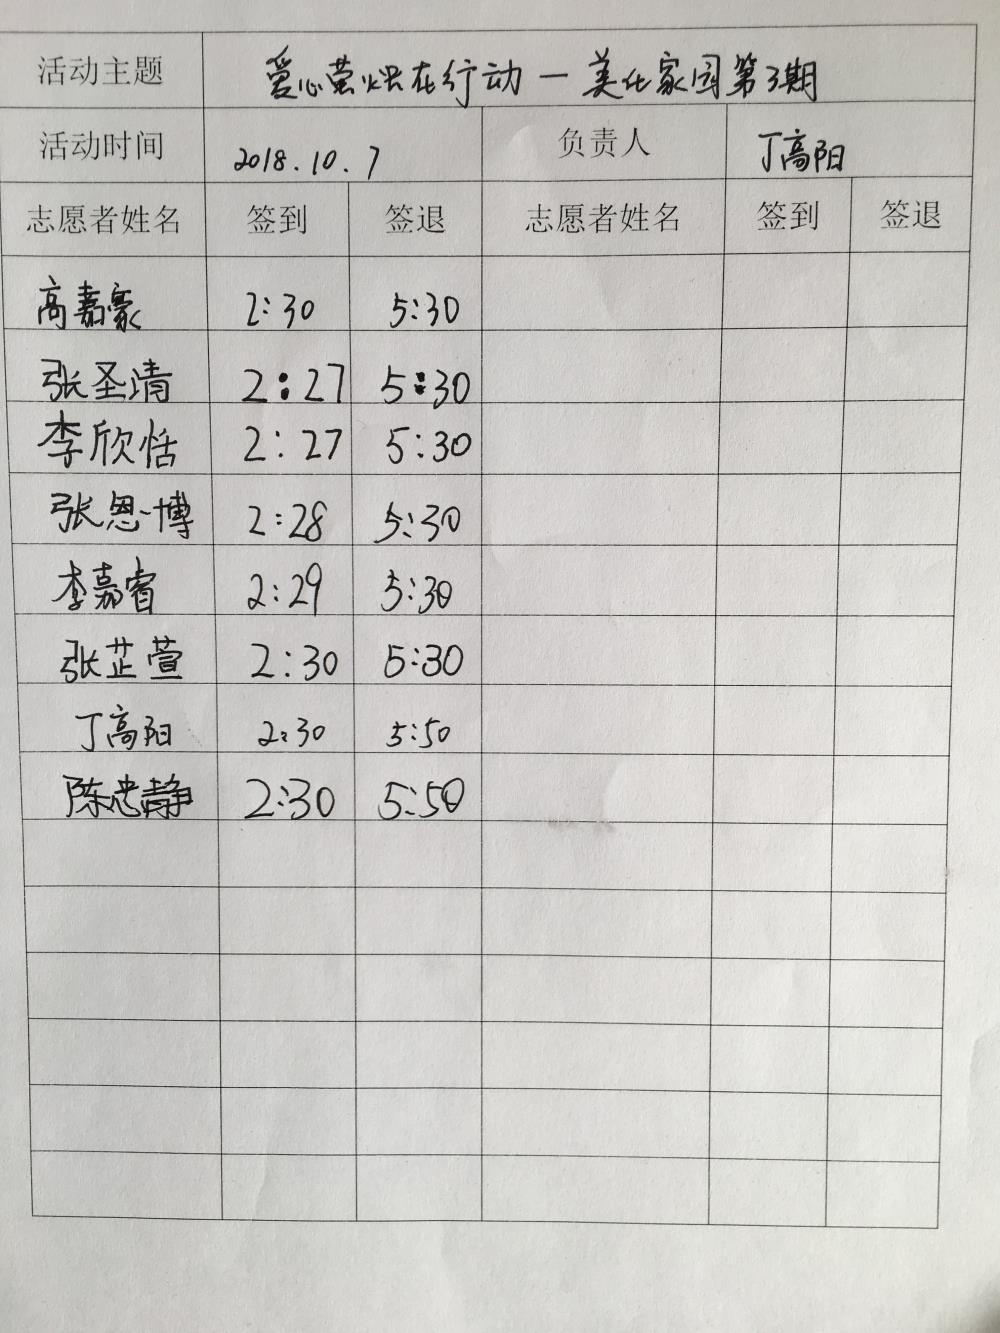 活动主题 爱心萤火虫在行动一美化家园第3期
活动时间 2018.10.7 负责人 丁高阳
志愿者姓名 签到 签退 志愿者姓名 签到 签退
高嘉豪 2:30 5:30
张圣清 2:27 5:30
李欣恬 2:27 5:30
张恩博 2:28 5:30
李嘉睿 2:29 5:30
张芷萱 2:30 5:30
丁高阳 2:30 5:50
陈忠静 2:30 5:50